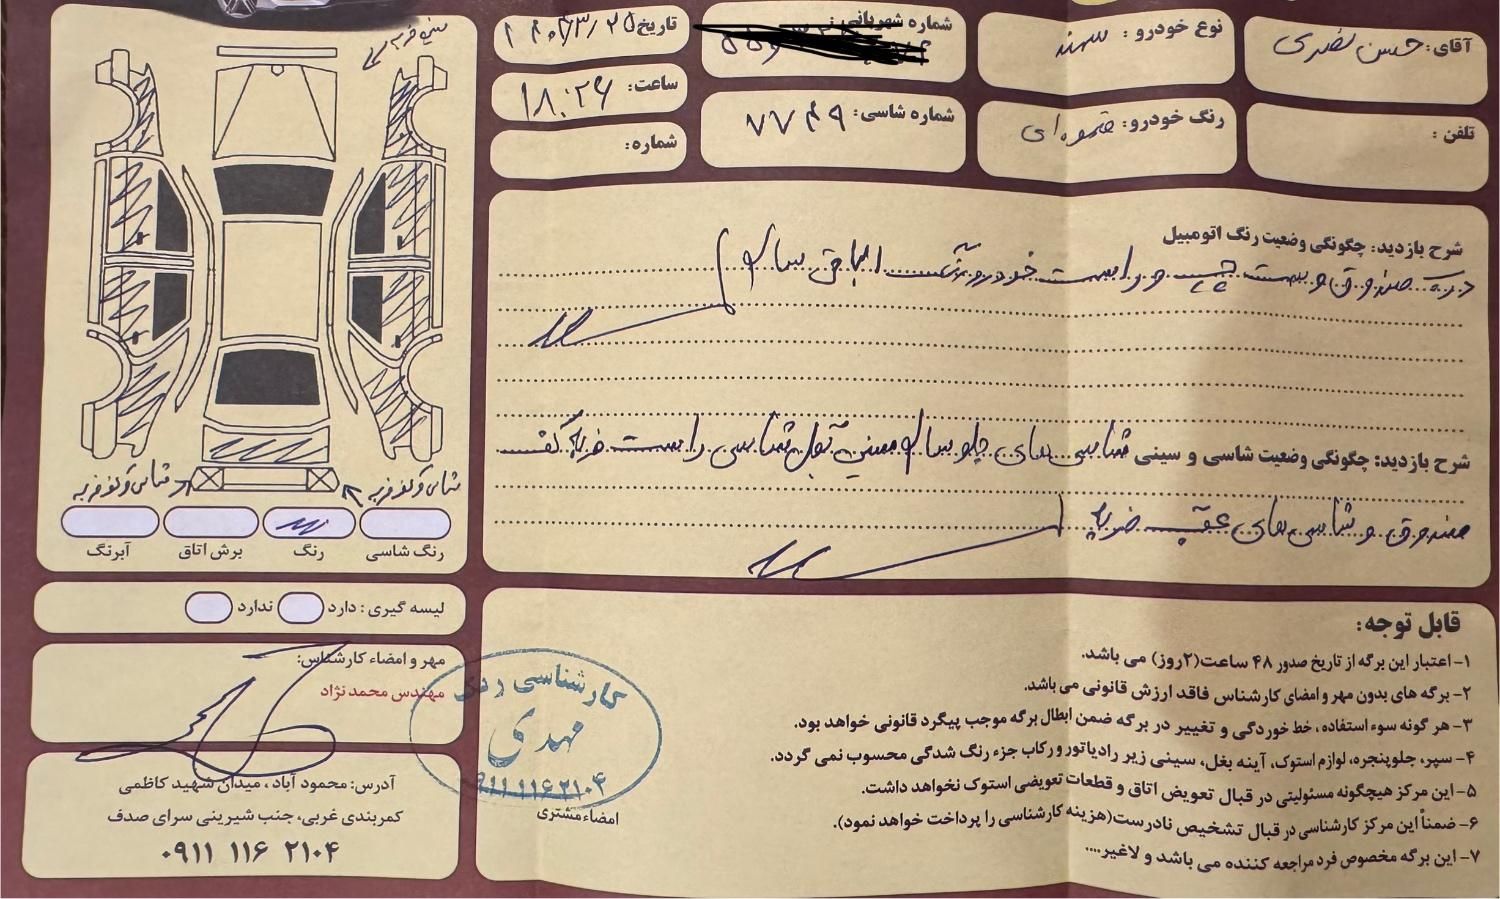 آقای: حسن نصری
نوع خودرو: سهند
شماره شهربانی:
تاریخ: ۱۴۰۳/۳/۲۵
تلفن:
رنگ خودرو: قهوه‌ای
شماره شاسی: ۷۷۴۹
ساعت: ۱۸:۲۶
شماره:
شرح بازدید: چگونگی وضعیت رنگ اتومبیل
درب صندوق و سمت چپ و راست خودرو رنگ است الباقی سالم
شرح بازدید: چگونگی وضعیت شاسی و سینی
شاسی های جلو سالم سینی بغل شاسی راست ضربه کف
صندوق و شاسی های عقب ضربه
سینی ضربه
شاسی و کف ضربه
شاسی و کف ضربه
رنگ شاسی
رنگ
برش اتاق
آبرنگ
لیسه گیری: دارد ندارد
مهر و امضاء کارشناس:
مهندس محمدنژاد
آدرس: محمود آباد، میدان شهید کاظمی
کمربندی غربی، جنب شیرینی سرای صدف
۰۹۱۱ ۱۱۶ ۲۱۰۴
کارشناسی رنگ
مهدی
۰۹۱۱۱۱۶۲۱۰۴
امضاء مشتری
قابل توجه:
۱- اعتبار این برگه از تاریخ صدور ۴۸ ساعت(۲روز) می باشد.
۲- برگه های بدون مهر و امضای کارشناس فاقد ارزش قانونی می باشد.
۳- هر گونه سوء استفاده، خط خوردگی و تغییر در برگه ضمن ابطال برگه موجب پیگرد قانونی خواهد بود.
۴- سپر، جلوپنجره، لوازم استوک، آینه بغل، سینی زیر رادیاتور و رکاب جزء رنگ شدگی محسوب نمی گردد.
۵- این مرکز هیچگونه مسئولیتی در قبال تعویض اتاق و قطعات تعویضی استوک نخواهد داشت.
۶- ضمناً این مرکز کارشناسی در قبال تشخیص نادرست(هزینه کارشناسی را پرداخت خواهد نمود).
۷- این برگه مخصوص فرد مراجعه کننده می باشد و لاغیر....